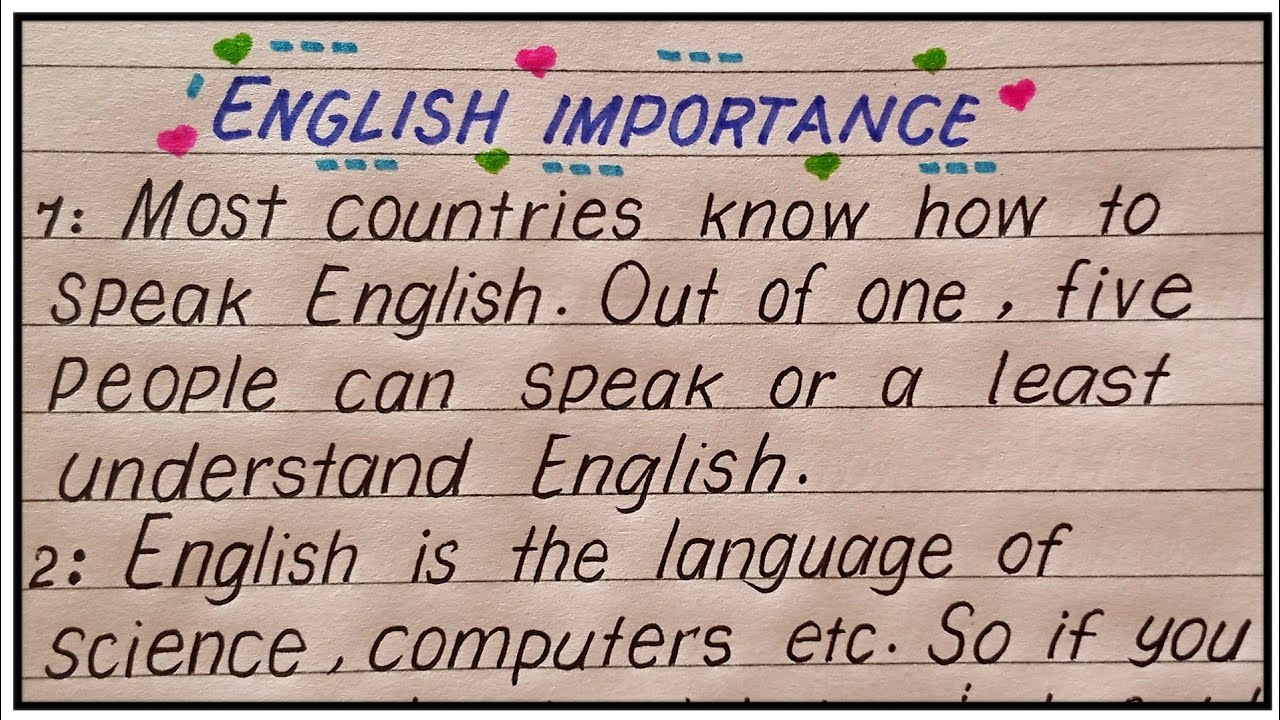 ENGLISH IMPORTANCE
1: Most countries know how to
speak English. Out of one, five
people can speak or a least
understand English.
2: English is the language of
science, computers etc. So if you